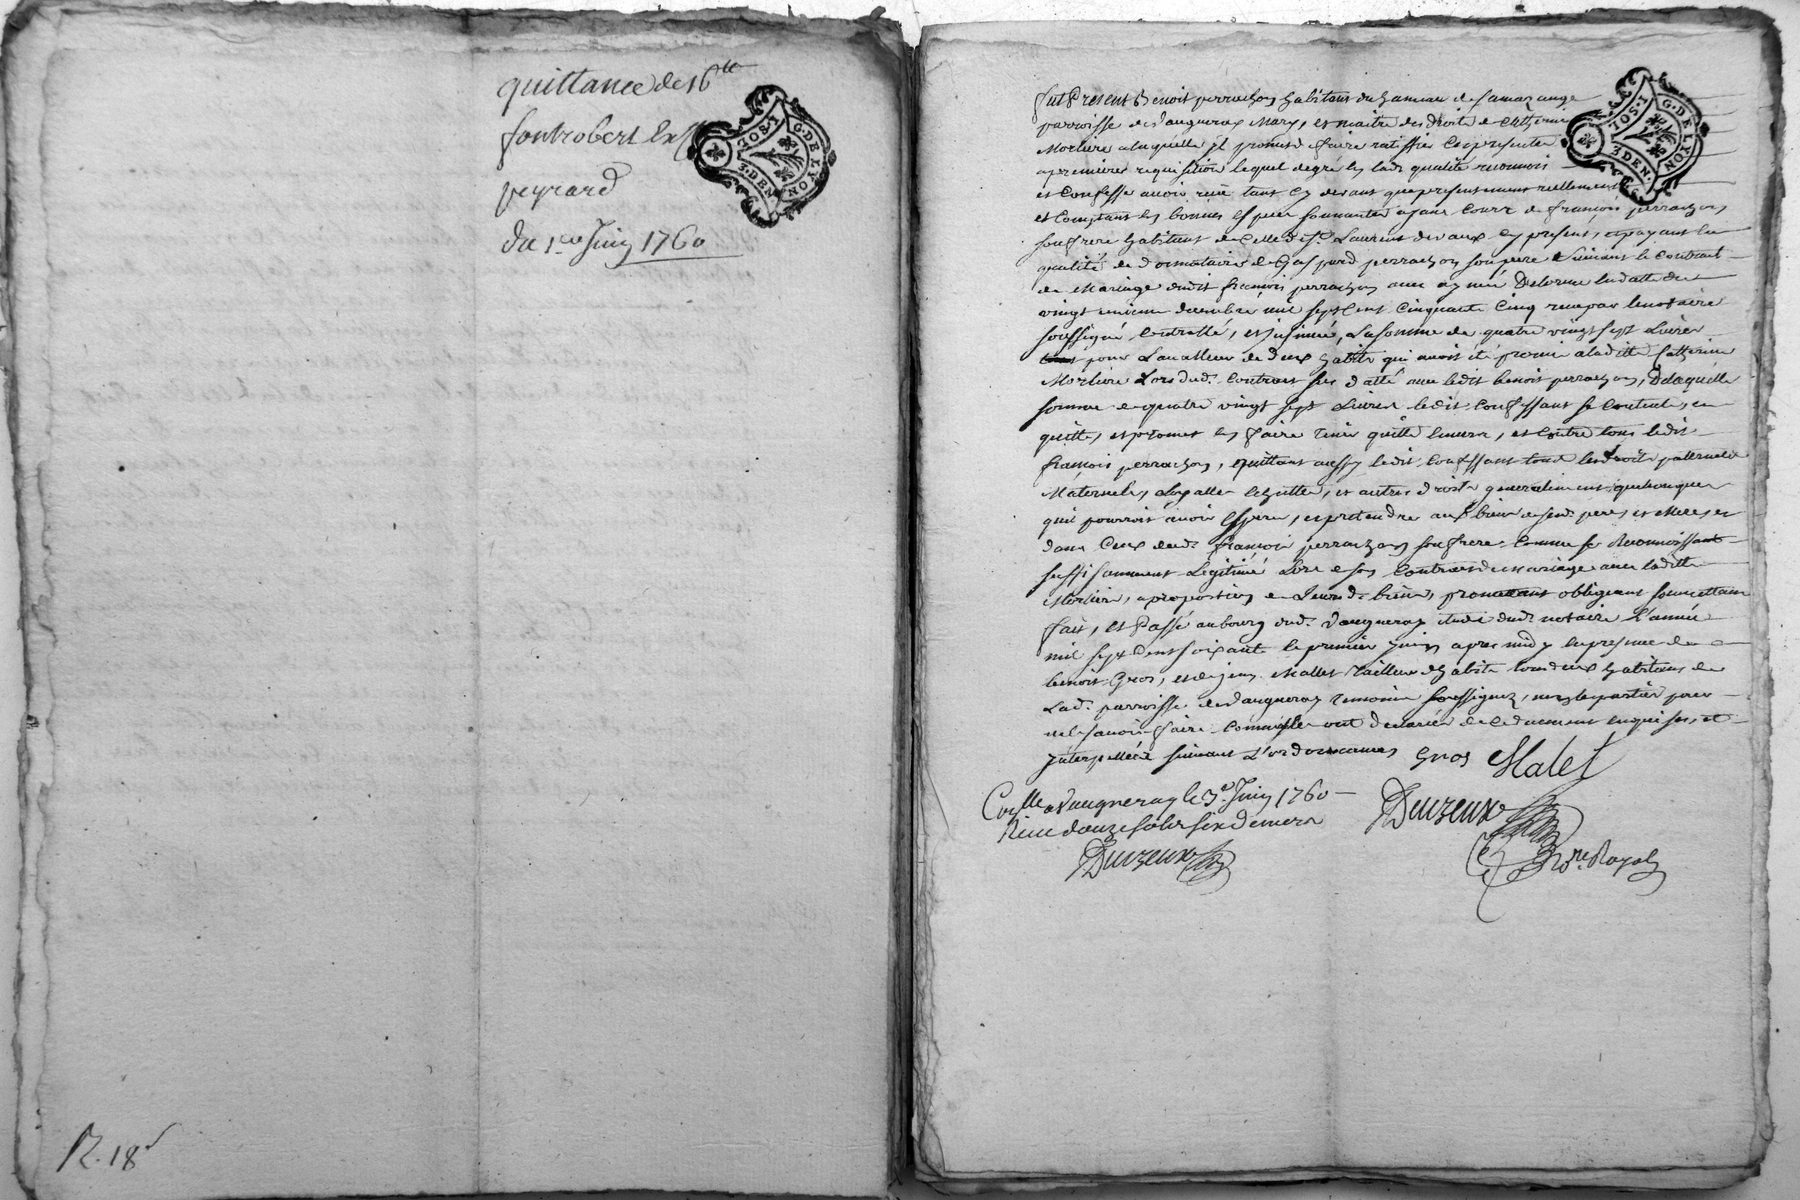 quittance de 16ᵗᵗ
fontrobert
peyrard
du 1er Juin 1760
R. 18ˢ
G. DE LYON
1 SOL.
3 DEN.
fut Present Benoit perrachon habitant du hameau de
parroisse de Vaugneray Mary, et maitre des droits de Catherine
Morliere a laquelle il promet faire ratiffier Ces presentes
a premiere requisition lequel de gré en lad. qualité reconnoit
et Confesse avoir reçu tant cy devant que presentement reellement
et Comptant en bonnes especes sonnantes ayant Cours de françois perrachon
son frere habitant de Celle de St. Laurent de vaux cy present, et payant en
qualité de donnataire de Gaspard perrachon son pere suivant le Contract
de Mariage dudit françois perrachon avec Delorme en datte du
vingt decembre mil sept Cent Cinquante Cinq reçu par le notaire
soussigné Controllé, et insinué, La somme de quatre vingt sept Livres
pour La valleur de deux habits qui avoit été promis a laditte Catherine
Morliere Lors dud. Contract sus datté avec ledit benoit perrachon, De laquelle
somme de quatre vingt sept Livres ledit Confessant se Contente, en
quitte, et promet en faire tenir quitte envers, et Contre tous ledit
françois perrachon, quittant aussy ledit Confessant tous les droits paternels
Maternels, et autres droits generalement quelconques
quil pourroit avoir esperer, et pretendre aux biens de sesd. peres, et Meres, et
dans Ceux dud. françois perrachon son frere Comme se Reconnoissant
suffisamment Legitimé Lors de son Contract de Mariage avec laditte
Morliere, a proportion de Leurs d. biens, promettant obligeant soumettant
fait, et Passé au bourg dud. Vaugneray etude dud. notaire L'année
mil sept Cent soixante le premier Juin apres midy en presence de
benoit Gros, et de jean Mallet Tailleur d'habits tous deux habitans de
Lad. parroisse de Vaugneray temoins soussignez, non les parties pour
ne le savoir faire Comme elles ont declarées de Ce duement enquises, et
Interpellées suivant L'ordonnance
Gros Malet
Conlle a Vaugneray le 3e Juin 1760
Reçu douze sols six deniers
Duvzeux
Duvzeux
G. DE LYON
1 SOL.
3 DEN.